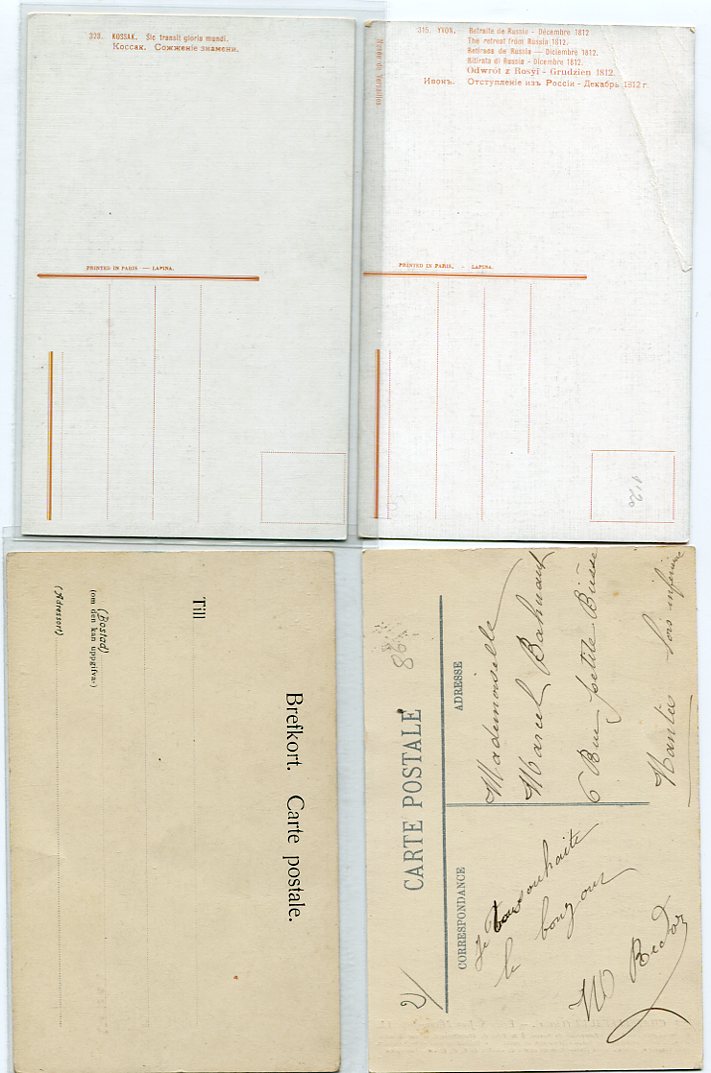 320. KOSSAK. Sic transit gloria mundi.
Коссак. Сожженіе знамени.
PRINTED IN PARIS — LAPINA.
315. YVON. Retraite de Russie - Décembre 1812
The retreat from Russia 1812.
Retirada de Russia — Diciembre 1812.
Ritirata di Russia - Dicembre 1812.
Odwrót z Rosyi - Grudzien 1812.
Ивонъ. Отступленіе изъ Россіи - Декабрь 1812 г.
Versailles
PRINTED IN PARIS. - LAPINA.
1120
Brefkort. Carte postale.
Till
(Bostad)
(om den kan uppgifva-)
(Adressort)
98
CARTE POSTALE
ADRESSE
Mademoiselle
Marcel
6 Rue petite Biesse
Nantes Loire inférieure
CORRESPONDANCE
Je vous souhaite
le bonjour